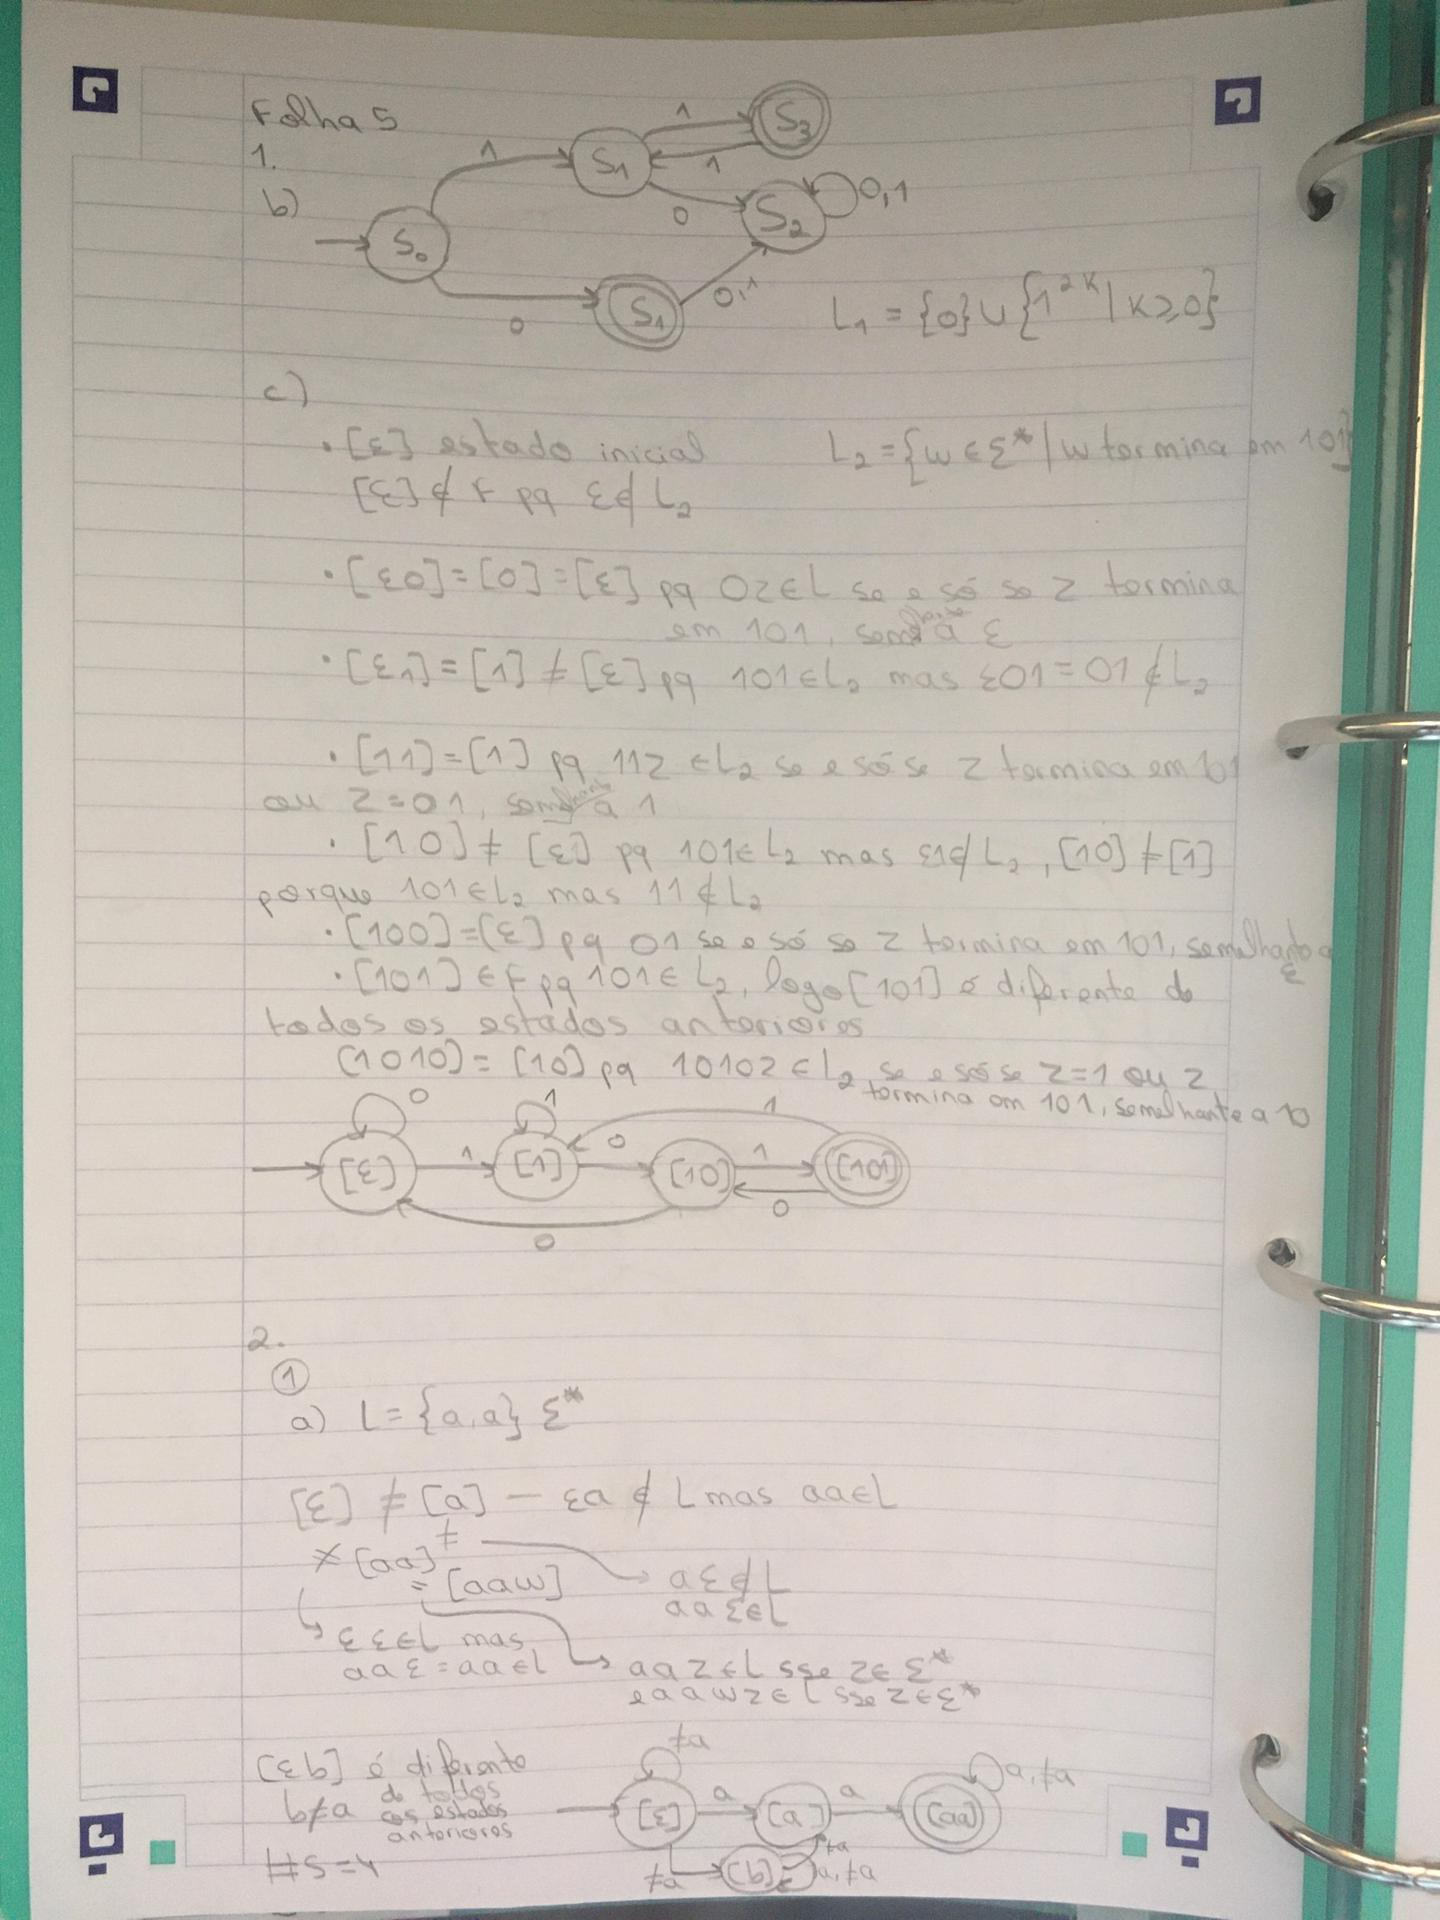 Folha 5
1.
b)
S₀
1
S₁
1
S₃
1
0
S₂
0,1
0
S₁
0,1
L₁ = {0} ∪ {1²ᵏ | k ≥ 0}
c)
• [ε] estado inicial L₂ = {w ∈ Σ* | w termina em 101}
[ε] ∉ F pq ε ∉ L₂
• [ε0] = [0] = [ε] pq 0z ∈ L se e só se z termina
em 101, semelhante a ε
• [ε1] = [1] ≠ [ε] pq 101 ∈ L₂ mas ε01 = 01 ∉ L₂
• [11] = [1] pq 11z ∈ L₂ se e só se z termina em 101
ou z = 01, semelhante a 1
• [10] ≠ [ε] pq 101 ∈ L₂ mas ε1 ∉ L₂, [10] ≠ [1]
porque 101 ∈ L₂ mas 11 ∉ L₂
• [100] = [ε] pq 01 se e só se z termina em 101, semelhante a
ε
• [101] ∈ F pq 101 ∈ L₂, logo [101] é diferente de
todos os estados anteriores
[1010] = [10] pq 1010z ∈ L₂ se e só se z = 1 ou z
termina em 101, semelhante a 10
0 1 1
[ε] 1 [1] 0 [10] 1 [101]
0
0
2.
①
a) L = {a.a} Σ*
[ε] ≠ [a] — εa ∉ L mas aa ∈ L
≠ [aa] ≠
= [aaw]
a ε ∉ L
aa ε ∈ L
ε ε ∈ L mas
aa ε = aa ∈ L
aa z ∈ L sse z ∈ Σ*
e aawz ∈ L sse z ∈ Σ*
[εb] é diferente
b ≠ a de todos
os estados
anteriores
#S = 4
≠a
[ε] a [a] a [aa] a, ≠a
≠a
≠a [b] a, ≠a